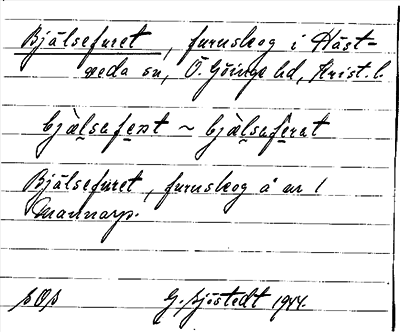 Bjälsefuret, furuskog i Häst-
veda sn, Ö. Göinge hd, Krist. l.
bjälsafent ~ bjälsaferat
Bjälsefuret, furuskog å nr 1
Mannarp.
SOS
G. Sjöstedt 1944.